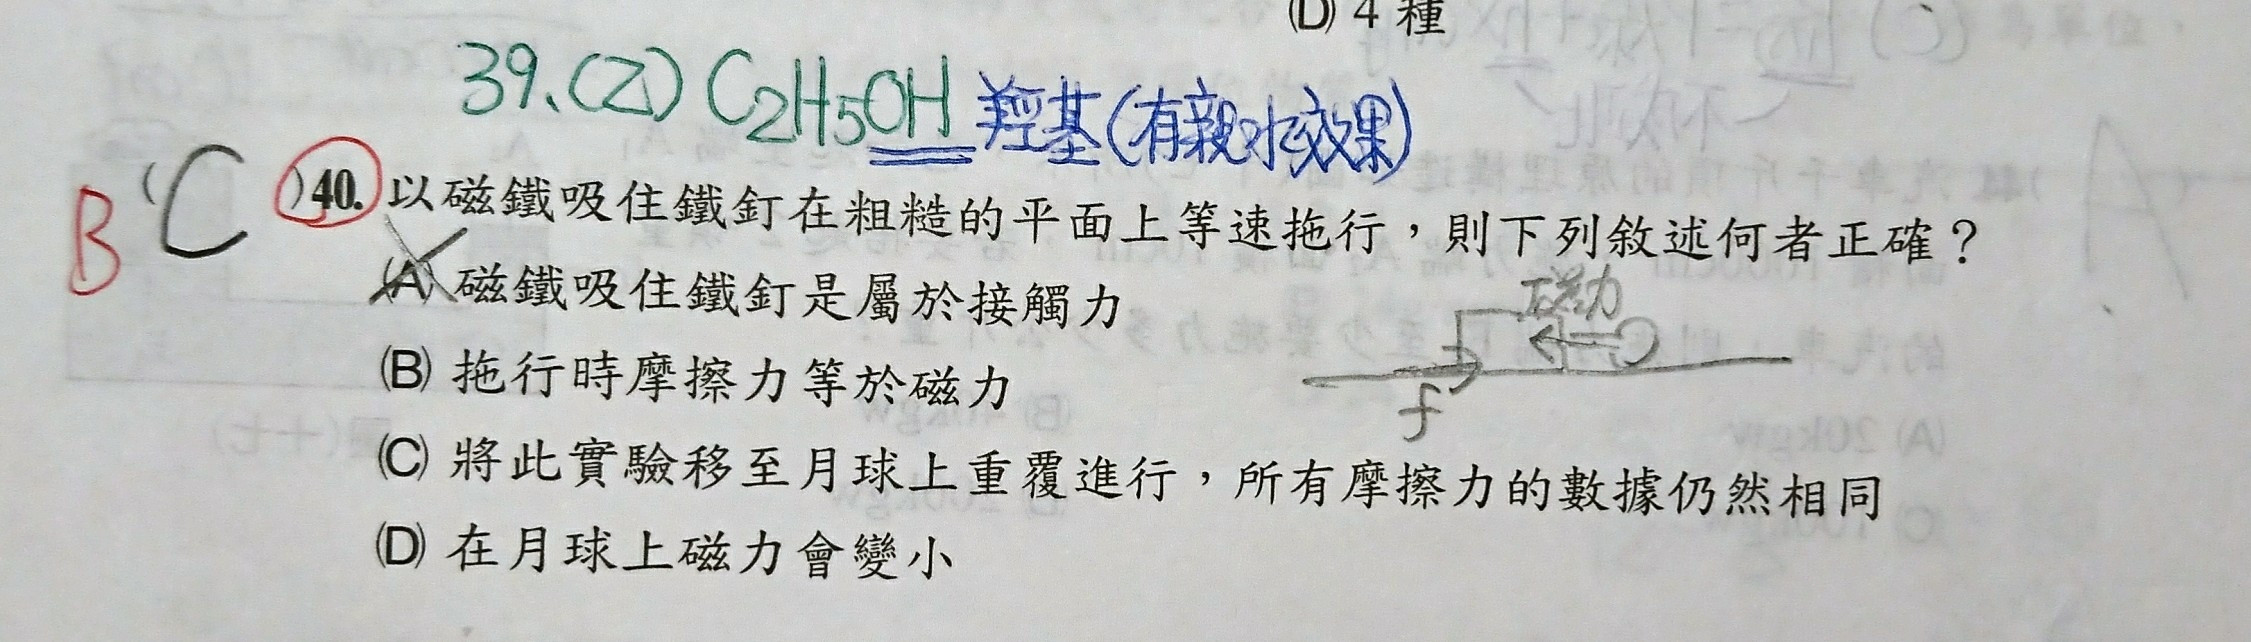 (D) 4 種
39.(2) C2H5OH 羥基(有親水效果)
B ( C )40. 以磁鐵吸住鐵釘在粗糙的平面上等速拖行，則下列敘述何者正確？
(A) 磁鐵吸住鐵釘是屬於接觸力
磁力
(B) 拖行時摩擦力等於磁力
f
(C) 將此實驗移至月球上重覆進行，所有摩擦力的數據仍然相同
(D) 在月球上磁力會變小